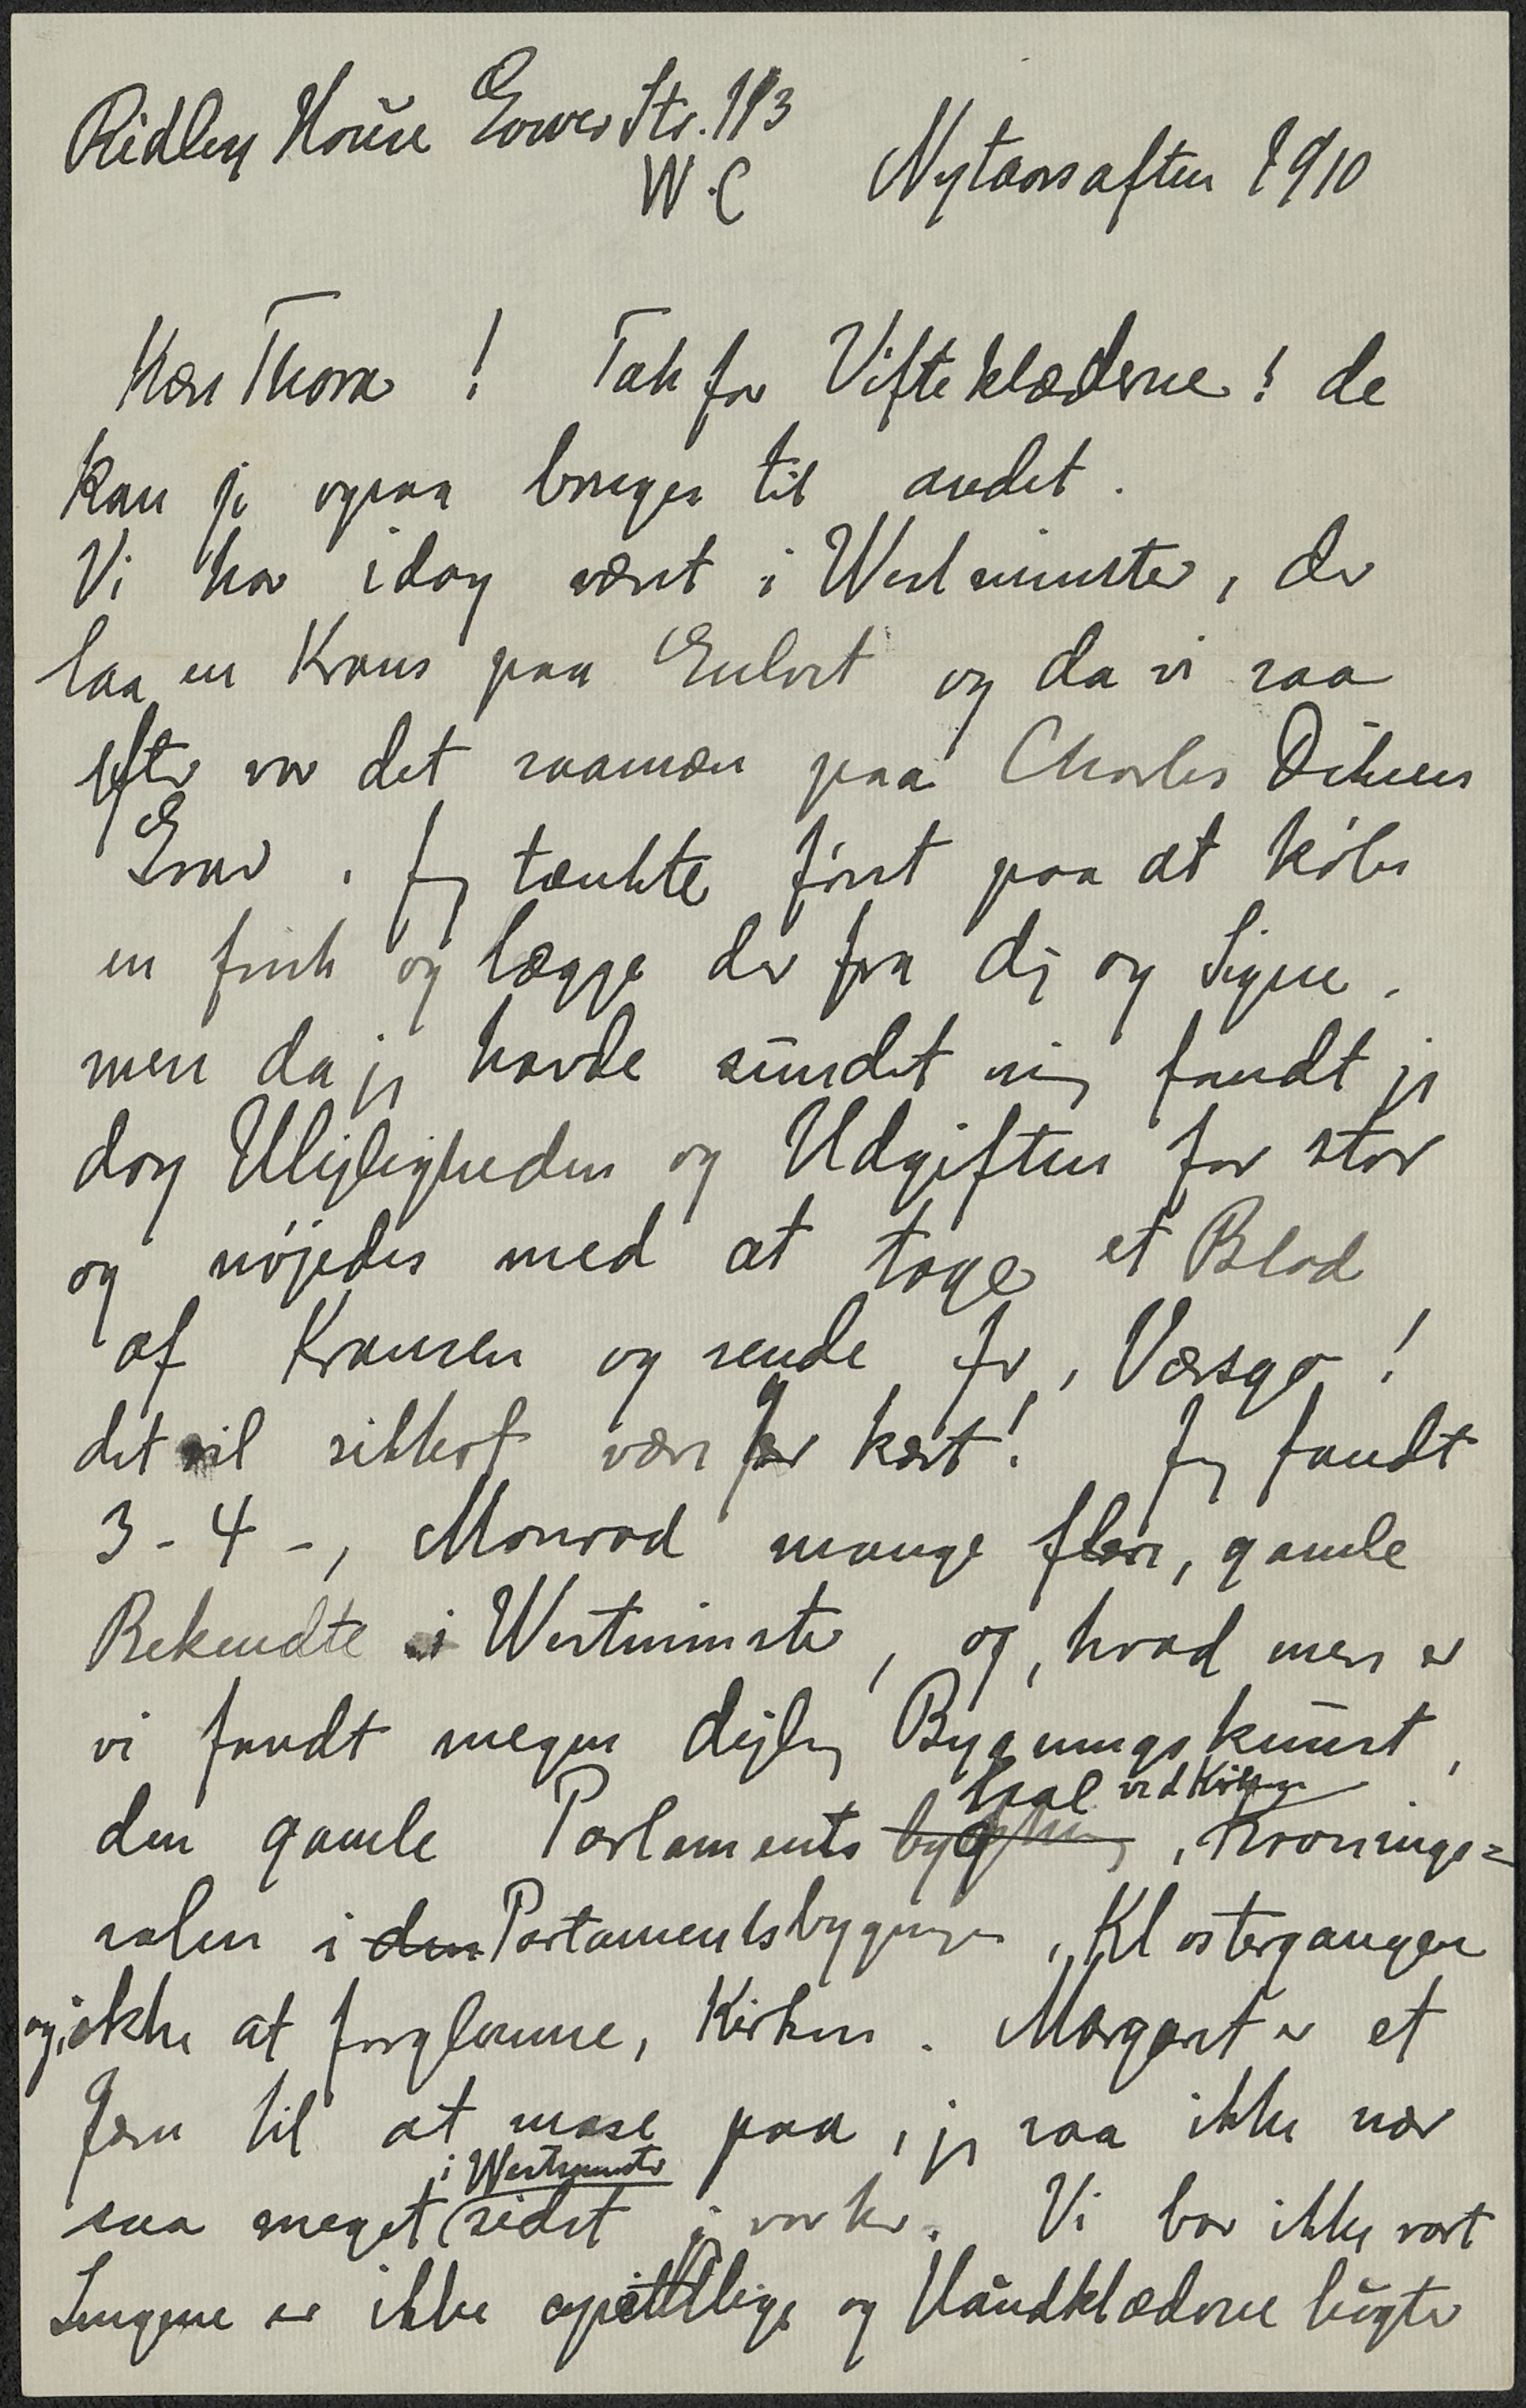 Ridley House Gower Str. 113
W.C Nytaarsaften 1910
Kære Thora! Tak for Vifteklæderne! de
kan jo ogsaa bruges til andet.
Vi har idag været i Westminster, der
laa en Krans paa Gulvet og da vi saa
efter var det saamæn paa Charles Dikens
Grav. Jeg tænkte først paa at købe
en frisk og lægge der fra dig og Signe,
men da jeg havde sundet mig fandt jeg
dog Ulejligheden og Udgiften for stor
og nøjedes med at tage et Blad
af Kransen og sende Jer, Værsgo!
det vil sikkert være Jer kært! Jeg fandt
3-4-, Monrad mange flere, gamle
Bekendte i Westminster, og, hvad mere er
vi fandt megen dejlig Bygningskunst,
hal ved Kirken
den gamle Parlaments bygning, Kronings=
salen i den Parlamentsbygningen, Klostergangen
og, ikke at forglemme, Kirken. Margaret er et
Jern til at mase paa, jeg saa ikke nær
i Westminster
saa meget sidst jeg var her. Vi bor ikke rart
Sengene er ikke appetitlige og Håndklæderne lugter